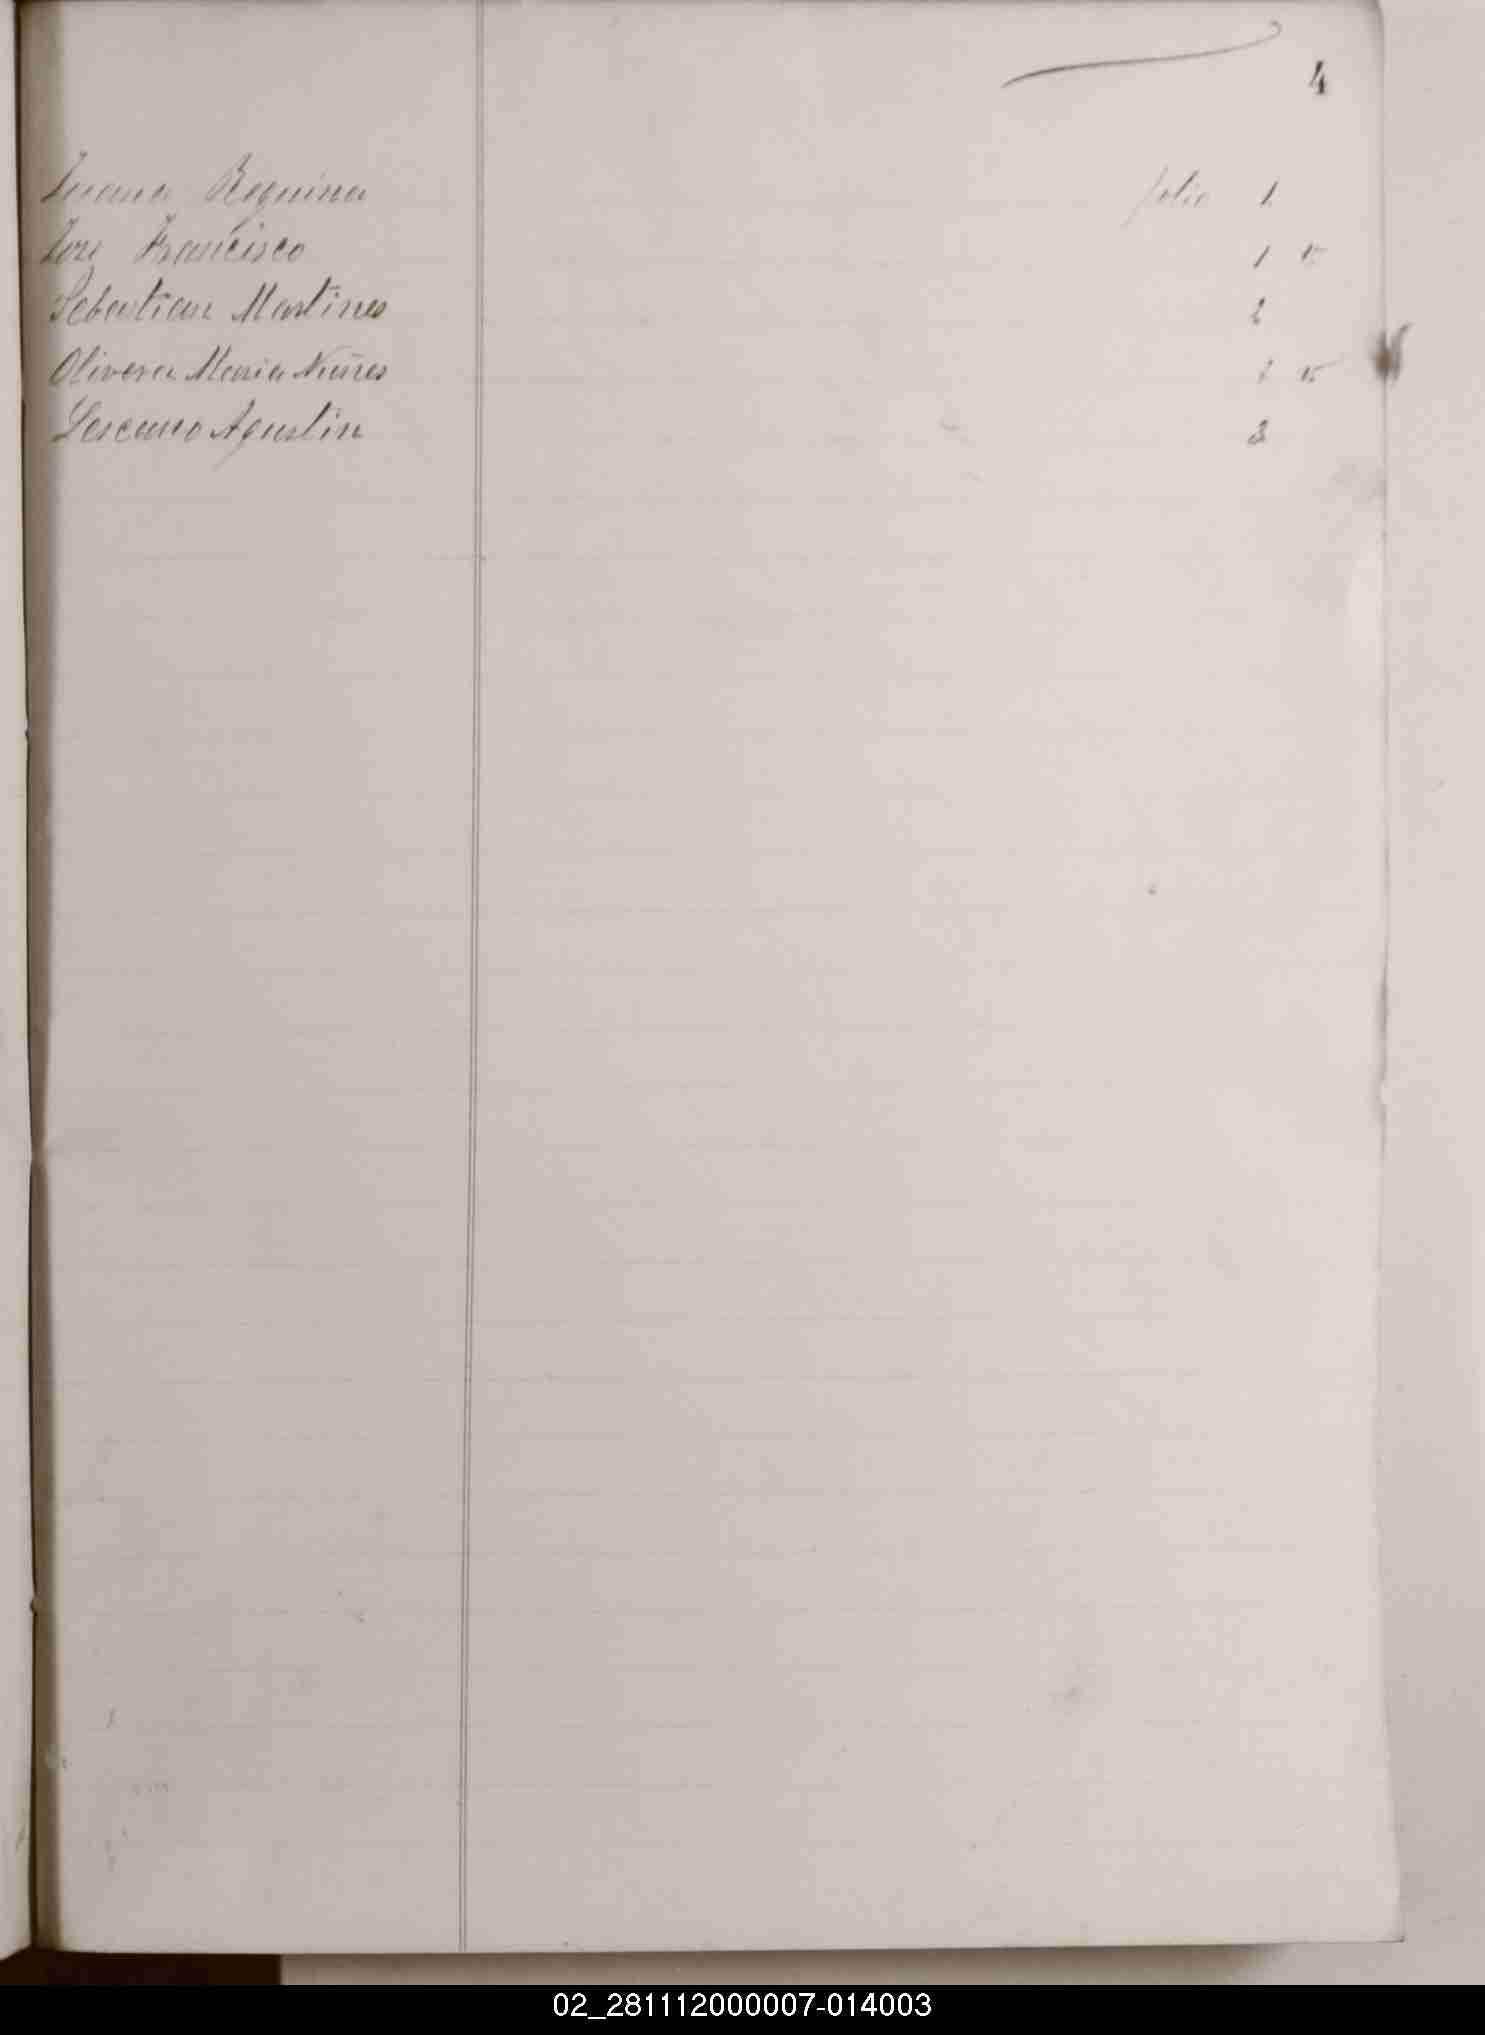 4
Juana Regina folio 1
José Francisco 1 v.
Sebastian Martines 2
Olivera Maria Nuñes 2 v.
Lescano Agustin 3
02_281112000007-014003